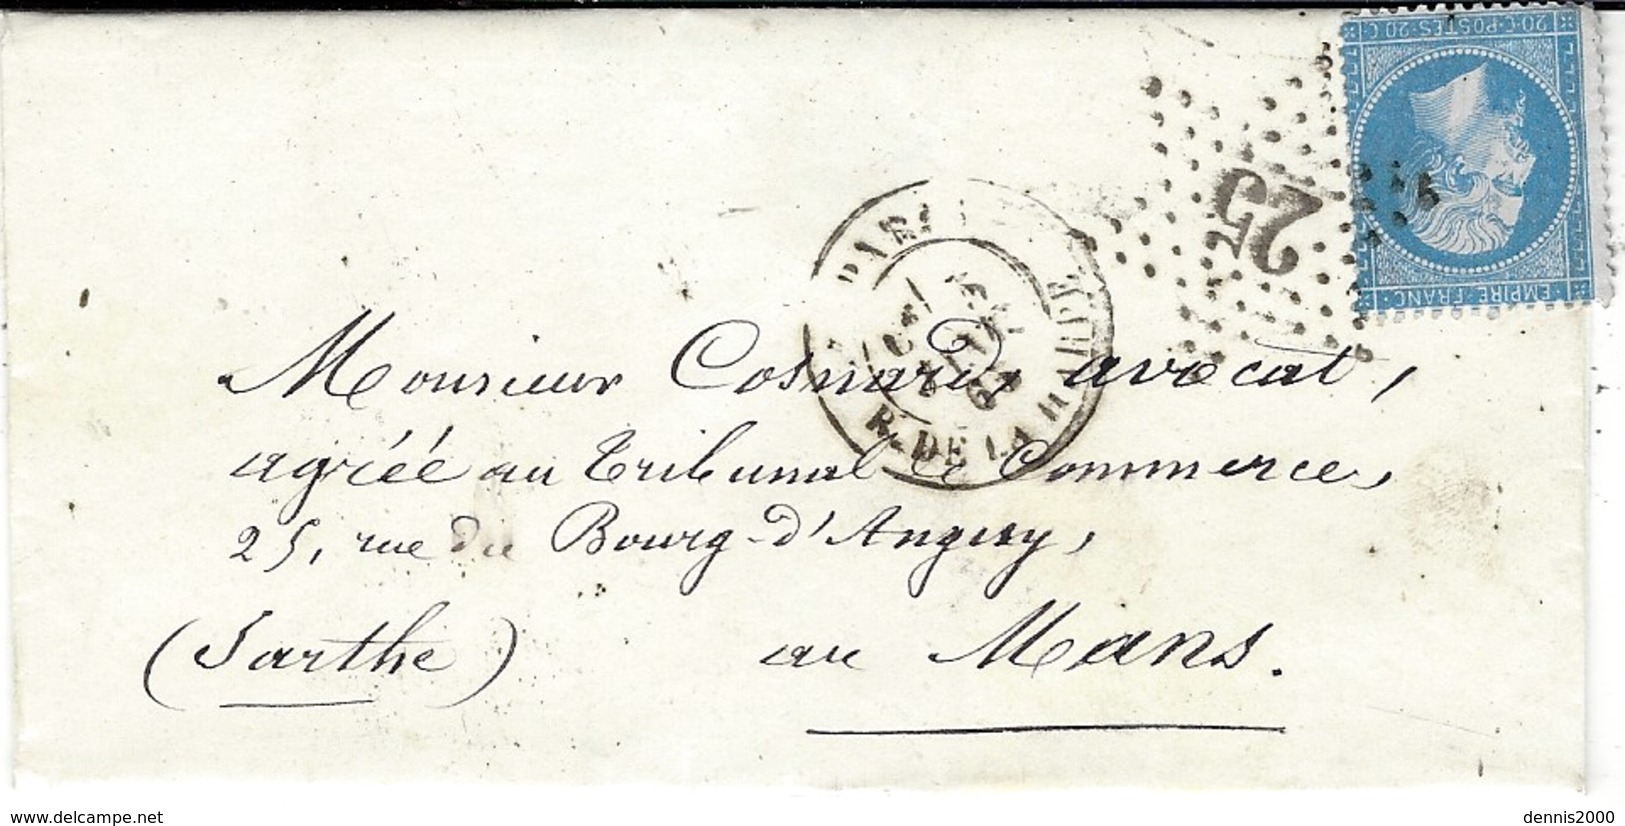 20 C · POSTES · 20 C
EMPIRE FRANC
25
PARIS
R. DE LA HARPE
Monsieur Cosnard, avocat,
agréé au Tribunal de Commerce,
25, rue du Bourg-d'Anguy,
(Sarthe) au Mans.
www.delcampe.net
dennis2000